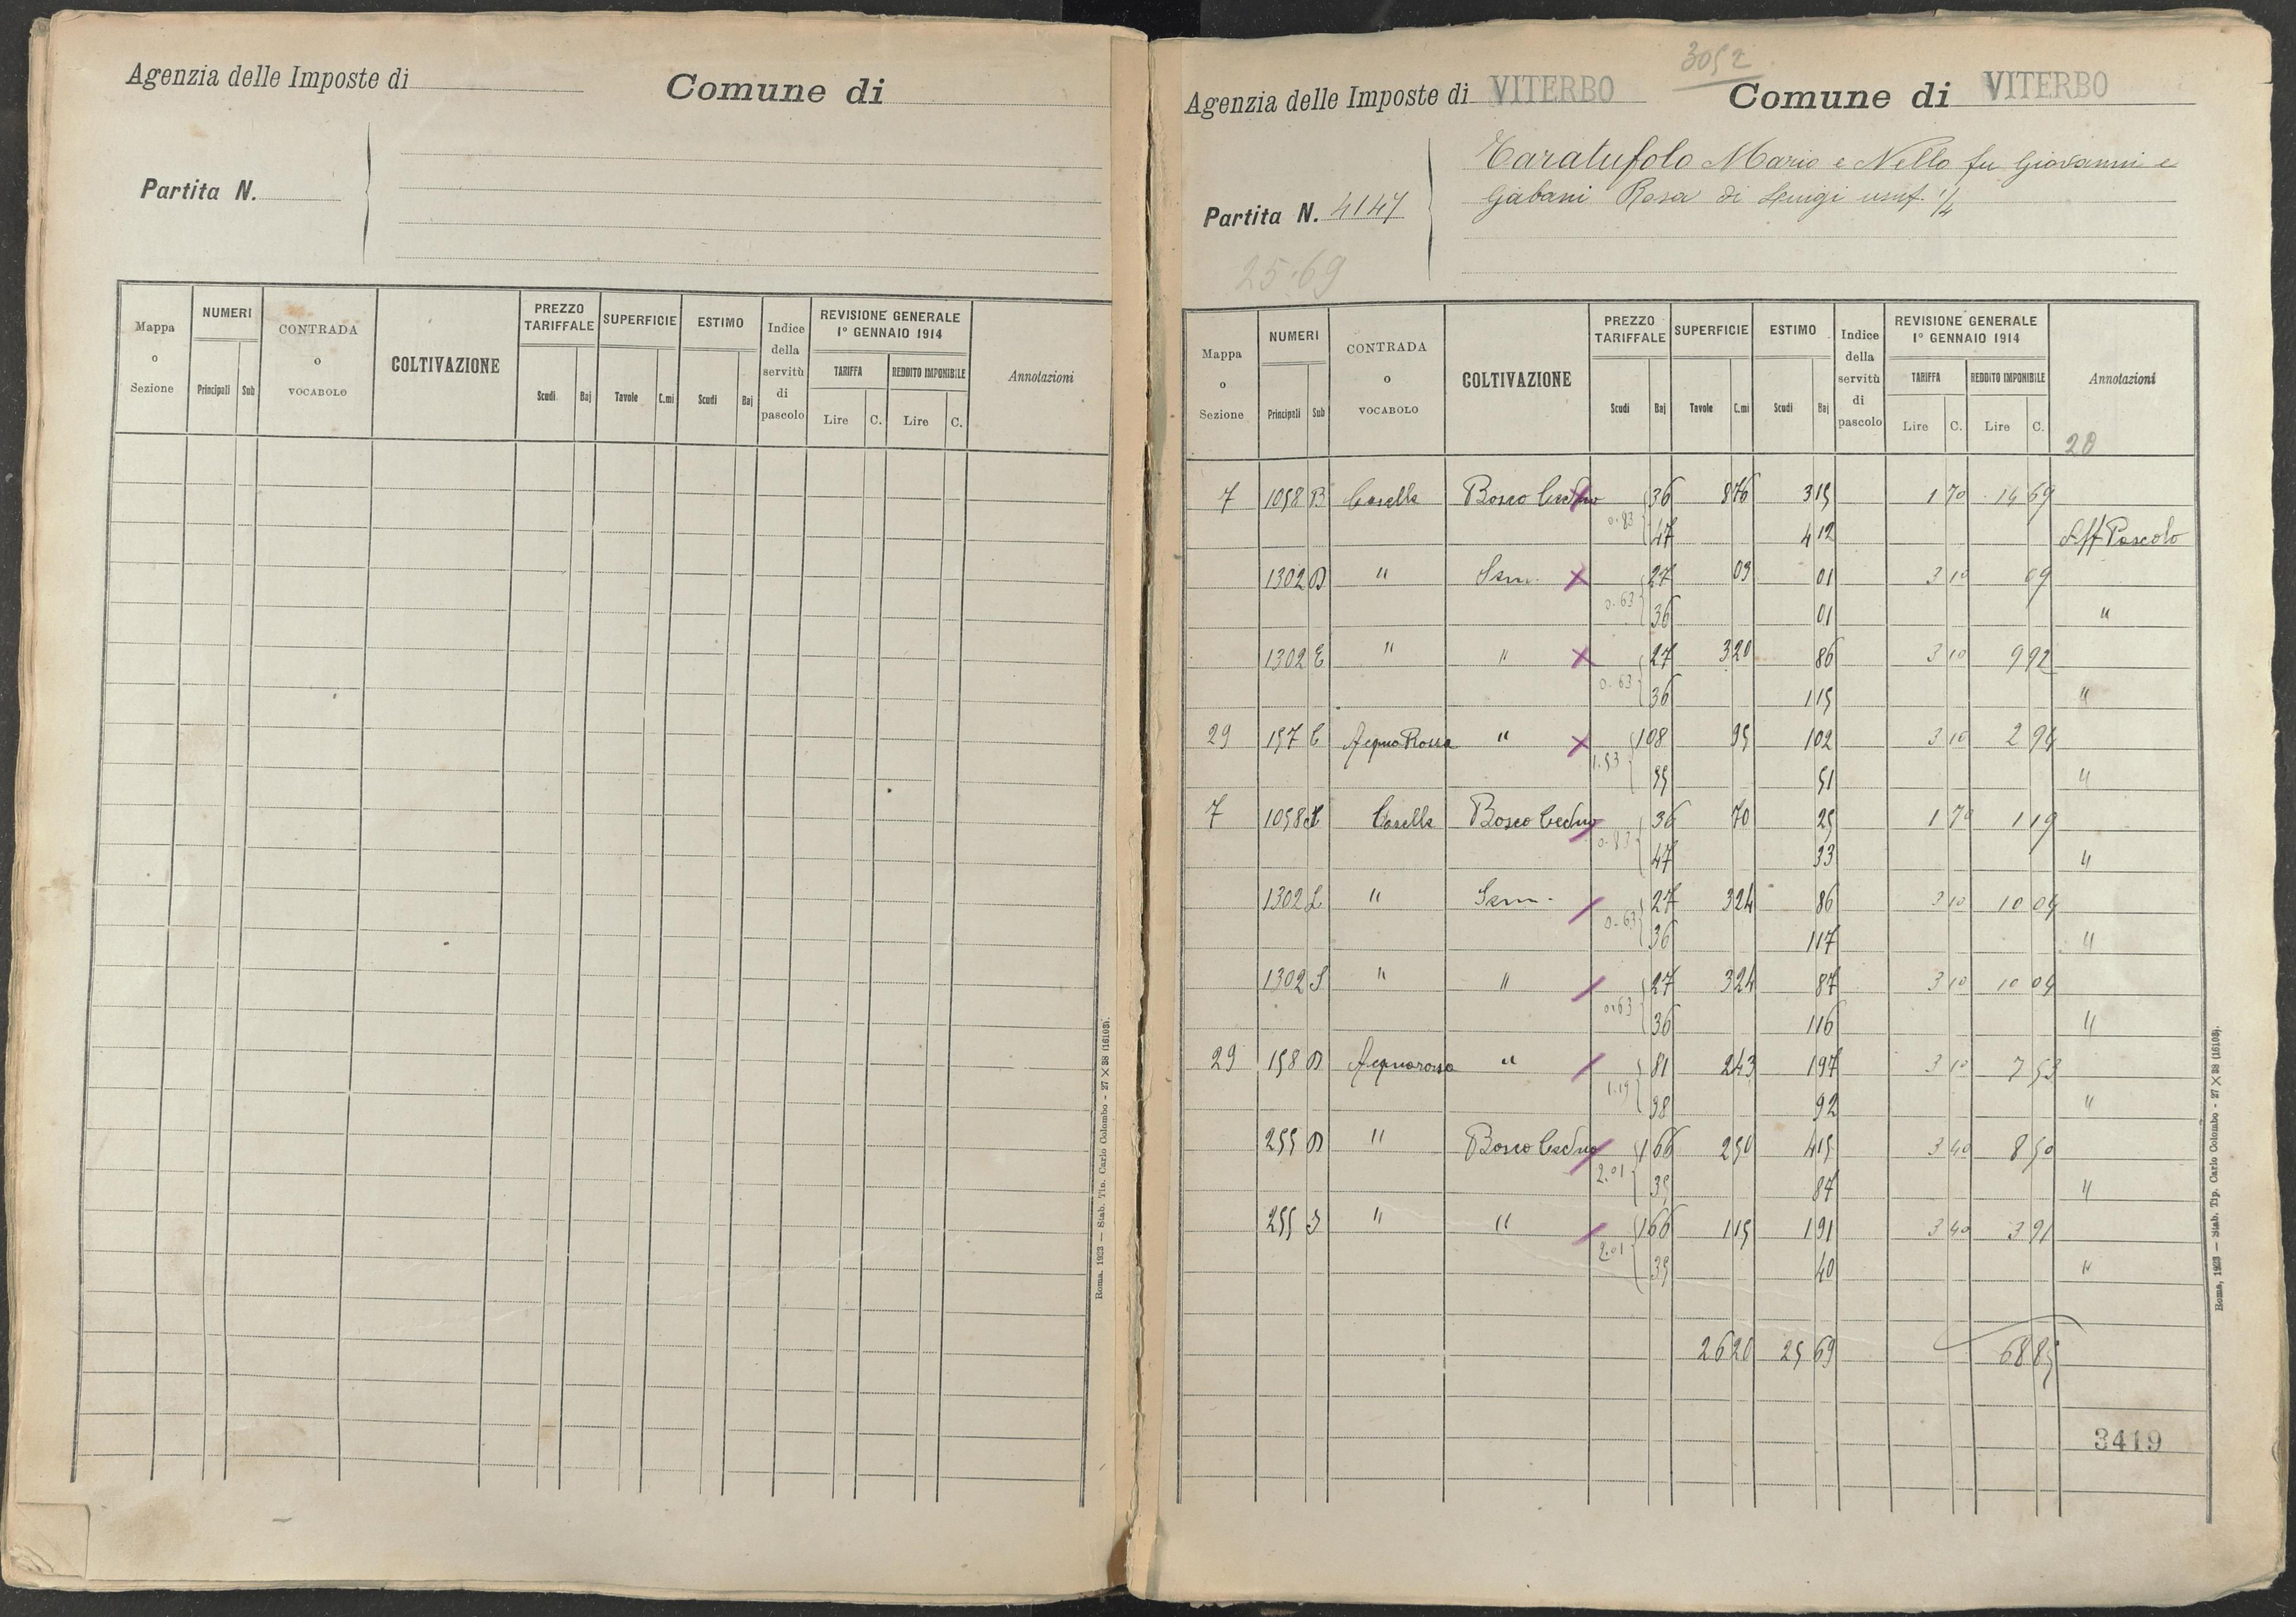 Agenzia delle Imposte di
Comune di
Partita N.
Mappa o Sezione
NUMERI
Principali Sub
CONTRADA o VOCABOLO
COLTIVAZIONE
PREZZO TARIFFALE
Scudi Baj
SUPERFICIE
Tavole C.mi
ESTIMO
Scudi Baj
Indice della servitù di pascolo
REVISIONE GENERALE 1° GENNAIO 1914
TARIFFA
Lire C.
REDDITO IMPONIBILE
Lire C.
Annotazioni
Roma. 1923 — Stab. Tip. Carlo Colombo - 27 X 38 (16103).
3052
Agenzia delle Imposte di VITERBO
Comune di VITERBO
Partita N. 4147
Taratufolo Mario e Nello fu Giovanni e
Gabani Rosa di Luigi usuf. 1/4
25.69
Mappa o Sezione
NUMERI
Principali Sub
CONTRADA o VOCABOLO
COLTIVAZIONE
PREZZO TARIFFALE
Scudi Baj
SUPERFICIE
Tavole C.mi
ESTIMO
Scudi Baj
Indice della servitù di pascolo
REVISIONE GENERALE 1° GENNAIO 1914
TARIFFA
Lire C.
REDDITO IMPONIBILE
Lire C.
Annotazioni
20
7 1058 B Casella Bosco Ceduo 36 876 315 1 70 14 69
0.83 47 412 Aff Pascolo
1302 D " Sem. 27 03 01 3 10 09
0.63 36 01 "
1302 E " " 27 320 86 3 10 9 92
0.63 36 115 "
29 157 C Acqua Rossa " 108 95 102 3 10 2 94
1.53 55 51 "
7 1058 Casella Bosco Ceduo 36 70 25 1 70 1 19
0.83 47 33 "
1302 L " Sem. 27 324 86 3 10 10 04
0.63 36 117 "
1302 S " " 27 324 87 3 10 10 04
0.63 36 116 "
29 158 D Acquarossa " 81 243 197 3 10 7 53
1.19 38 92 "
255 D " Bosco Ceduo 166 250 415 3 40 8 50
2.01 35 87 "
255 " " 166 115 191 3 40 3 91
2.01 35 40 "
26 20 25 69 68 85
3419
Roma, 1923 — Stab. Tip. Carlo Colombo - 27 X 38 (16103).